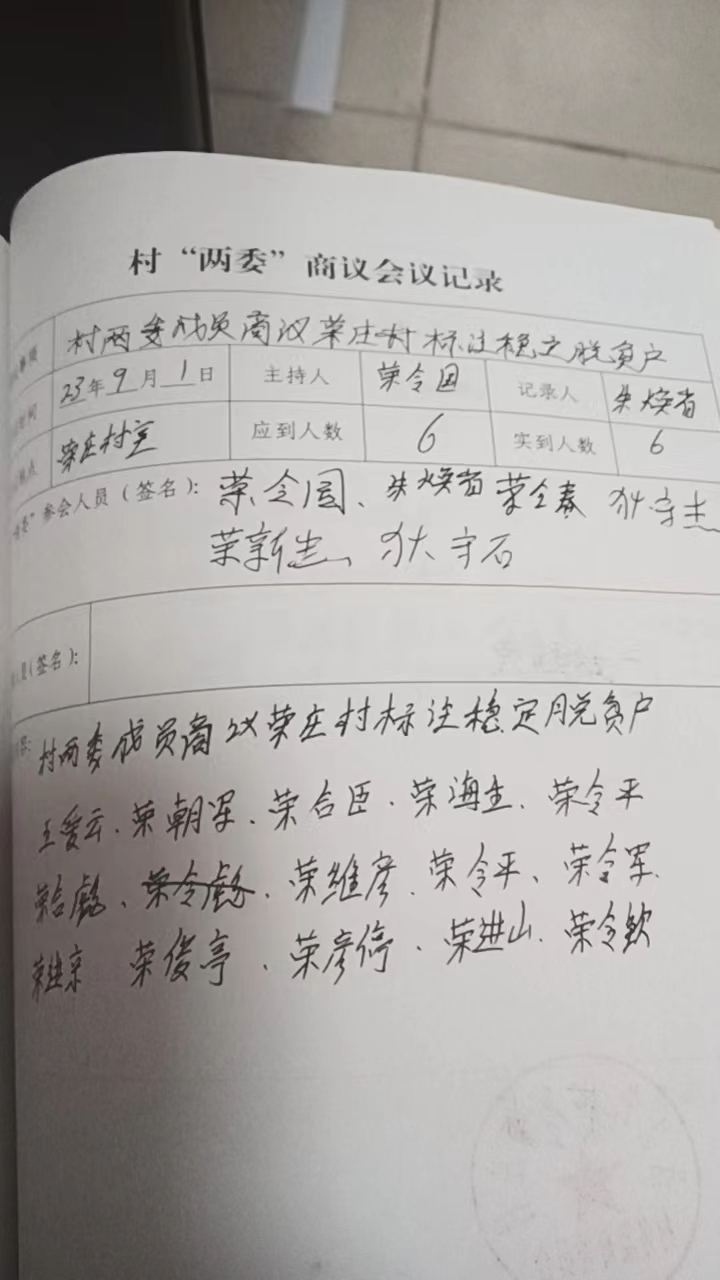 村“两委”商议会议记录
村两委成员商议荣庄村标注稳定脱贫户
23年9月1日 主持人 荣令国 记录人 朱焕省
地点 荣庄村室 应到人数 6 实到人数 6
委”参会人员(签名): 荣令国、朱焕省 荣全春 狄守杰
荣新忠 狄守石
员(签名):
容: 村两委成员商议荣庄村标注稳定脱贫户
王爱云、荣朝军、荣合臣、荣海生、荣令平
荣维彦、荣令平、荣令军、
荣俊亭、荣彦停、荣进山、荣令钦